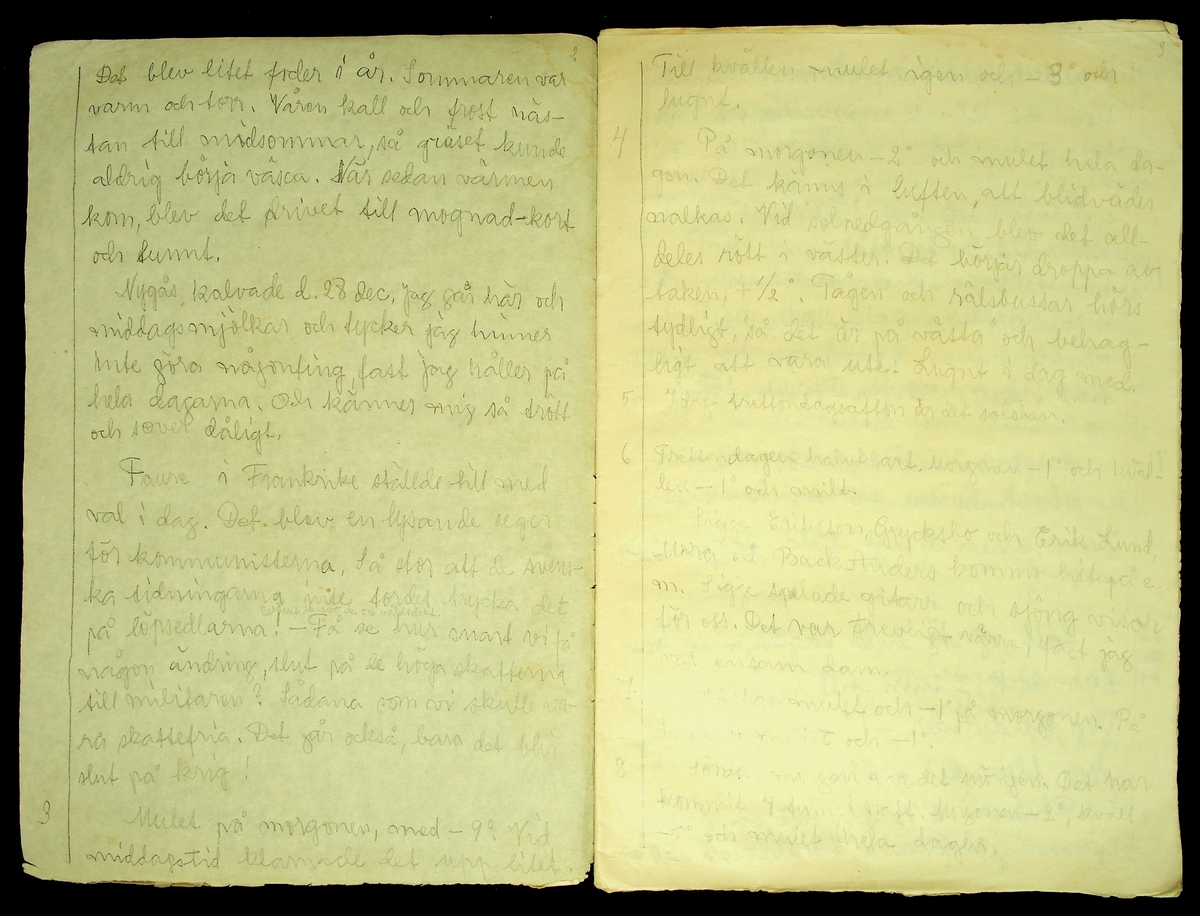 2
Det blev litet foder i år. Sommaren var
varm och torr. Våren kall och frost näs-
tan till midsommar, så gräset kunde
aldrig börja växa. När sedan värmen
kom, blev det drivet till mognad - kort
och tunnt.
Nygås kalvade d. 28 dec. Jag går här och
middagsmjölkar och tycker jag hinner
inte göra någonting, fast jag håller på
hela dagarna. Och känner mig så trött
och sover dåligt.
Faure i Frankrike ställde till med
val i dag. Det blev en lysande seger
för kommunisterna. Så stor att de svens-
ka tidningarna inte tordes trycka det
på löpsedlarna! - Få se hur snart vi få
någon ändring, slut på de höga skatterna
till militären? Sådana som vi skulle va-
ra skattefria. Det går också, bara det blir
slut på krig!
3
Mulet på morgonen, med - 9°. Vid
middagstid klarnade det upp litet.
3
Till kvällen mulet igen och - 3° och
lugnt.
4
På morgonen - 2° och mulet hela da-
gen. Det känns i luften, att blidväder
nalkas. Vid solnedgången blev det all-
deles rött i väster. Det börjar droppa av
taken, + ½°. Tågen och rälsbussar hörs
tydligt, så det är på västa" och behag-
ligt att vara ute. Lugnt i dag med.
5 I dag trettondagsafton är det solsken.
6 Trettondagen halvklart. Morgonen - 1° och kväl-
len - 1° och mild.
Sigge Eriksson, Grycksbo och Erik Lund,
Mora och Back Anders kommo hit på e.
m. Sigge spelade gitarr och sjöng visor
för oss. Det var trevligt värre, fast jag
var ensam dam.
7
mulet och - 1° på morgonen. På
och - 1°.
8
det snö igen. Det har
kommit 4 tum i natt. Morgonen - 2°, kväll
- 5° och mulet hela dagen.